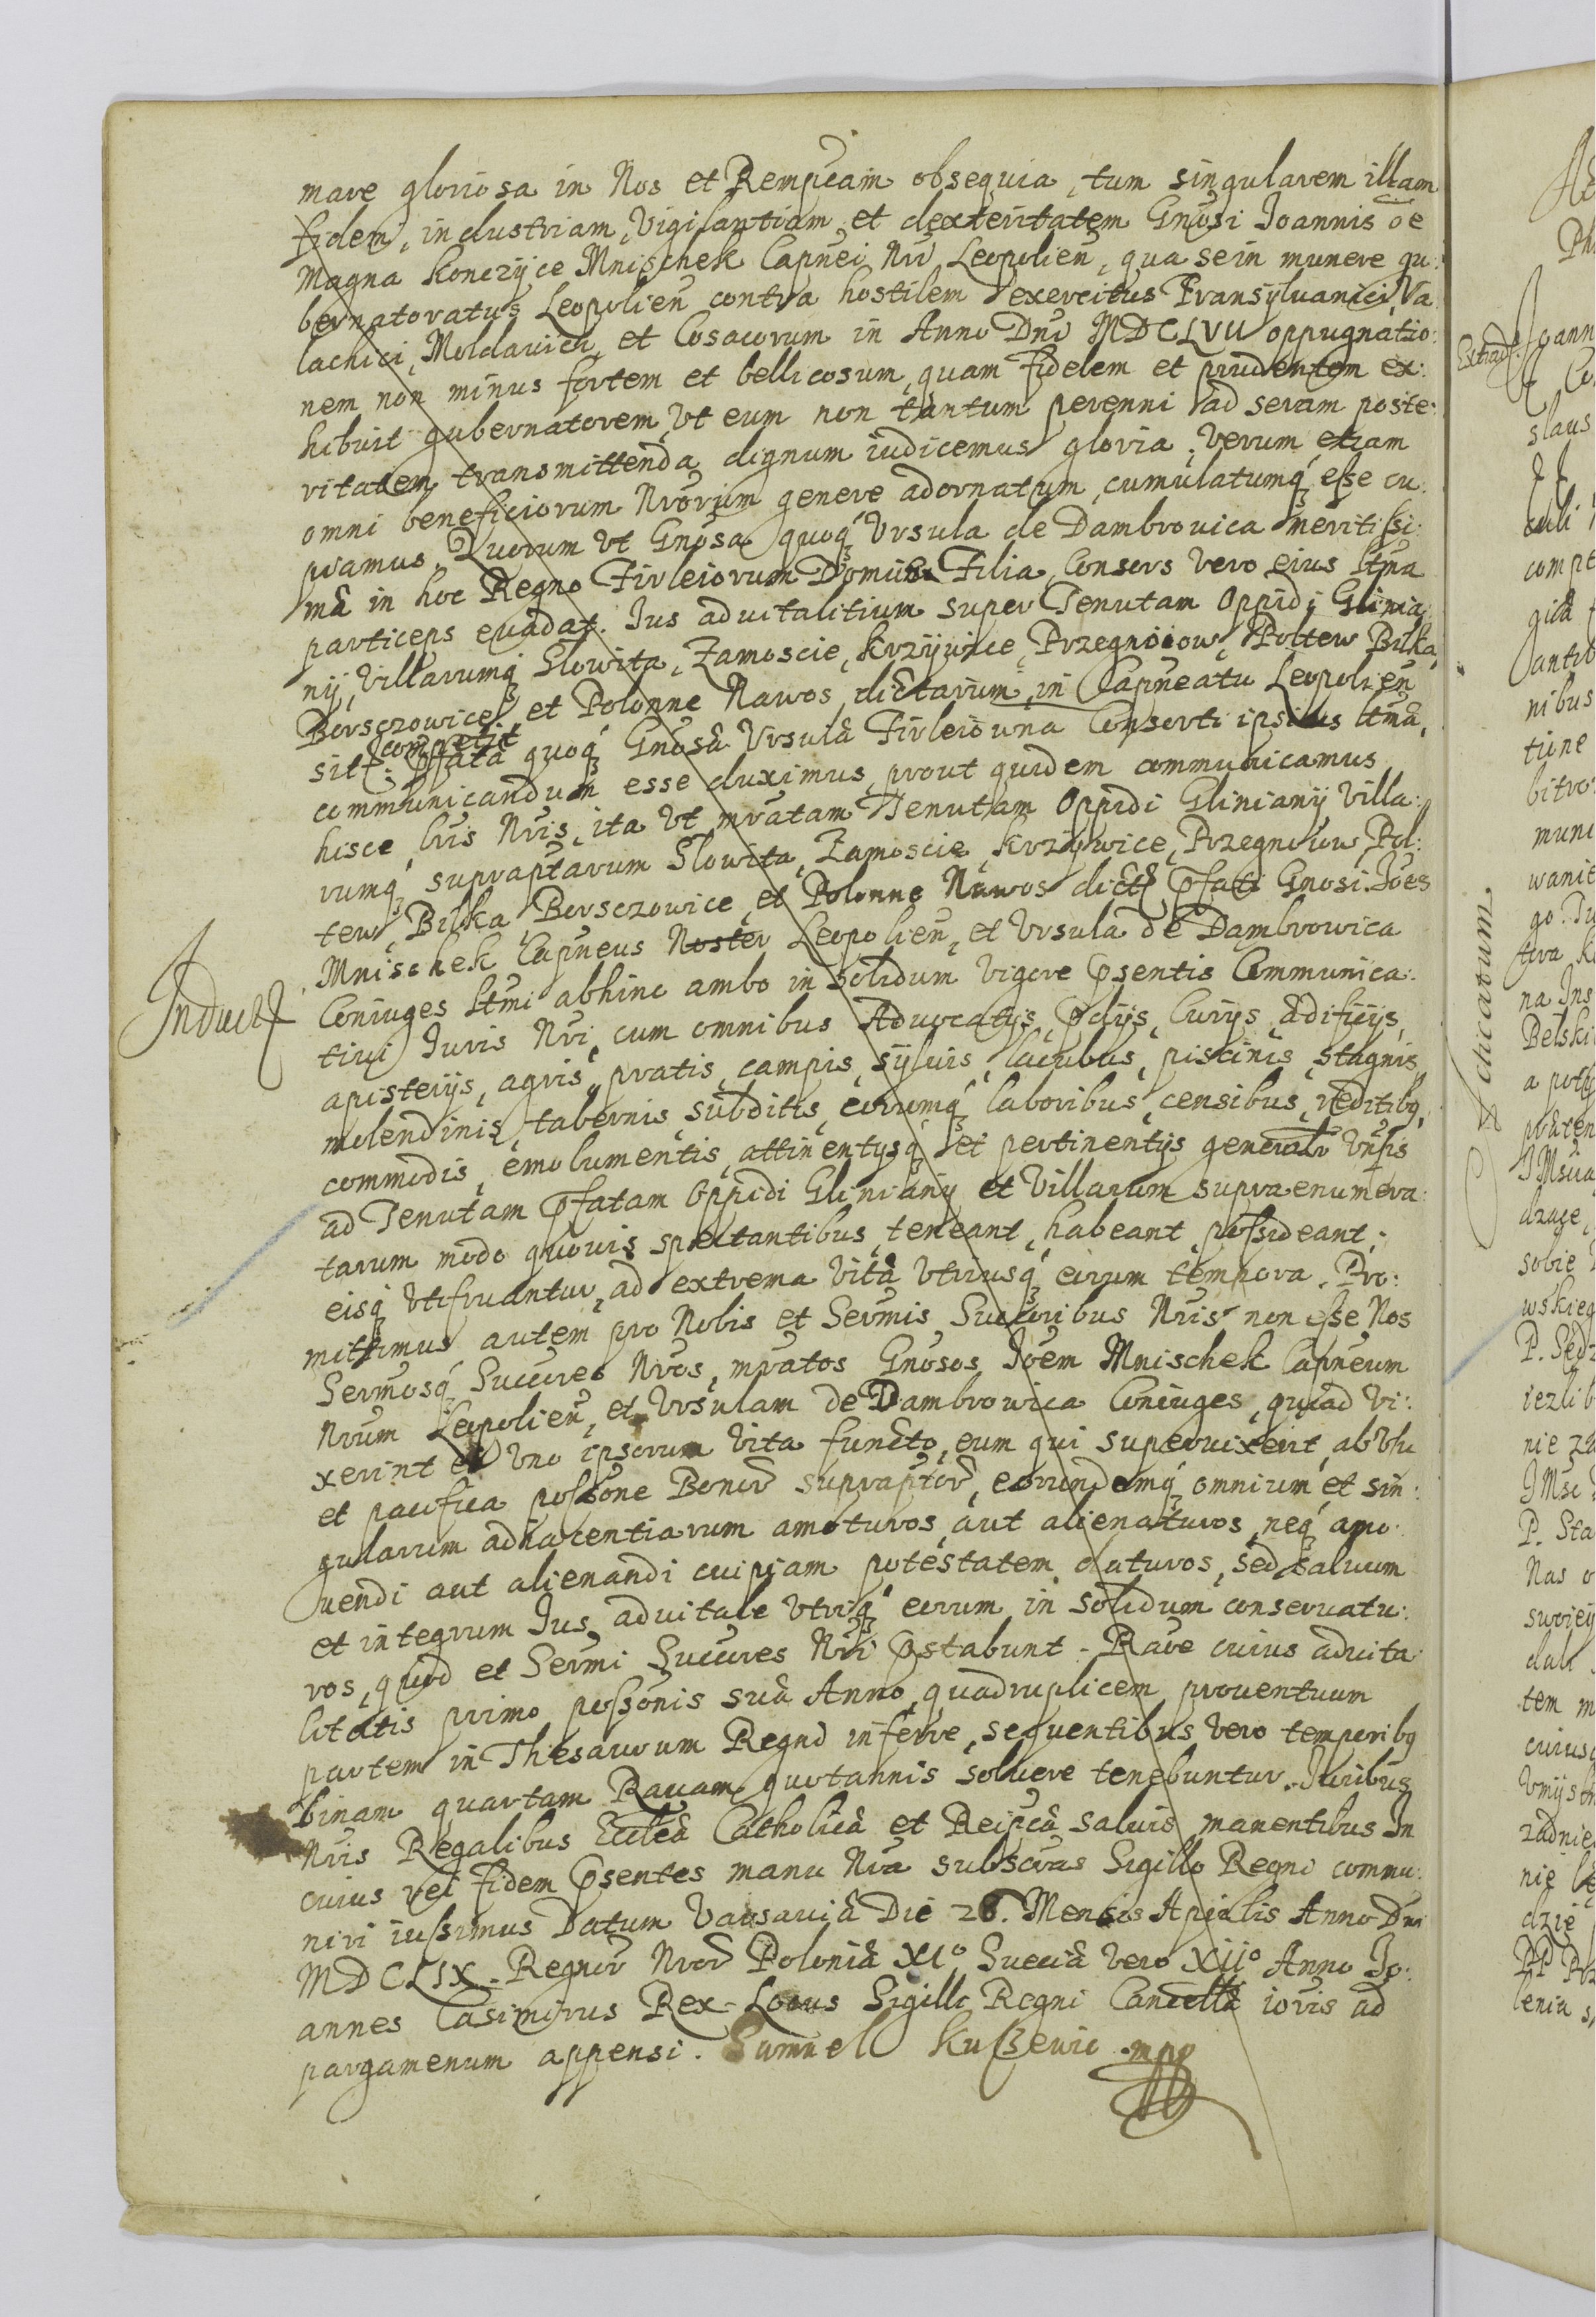 mare gloriosa in Nos et Rempcam obsequia, tum singularem illam
fidem, industriam, Vigilantiam et dexteritatem Gnosi Joannis de
Magna Konczyce Mnischek Capnei Nri Leopolien, qua se in munere gu:
bernatoratus Leopolien contra hostilem exercitus Transyluanici, Va
lachici, Moldauici, et Cosacorum in Anno Dni MDCLVII oppugnatio:
nem non minus fortem et bellicosum, quam fidelem et prudentem ex:
hibuit gubernatorem, Vt eum non tantum perenni ad seram poste:
ritatem transmittenda dignum iudicemus gloria, verum etiam
omni beneficiorum Nrorum genere adornatum, cumulatumq esse cu:
piamus. Quorum vt Gnosa quoq Vrsula de Dambrouica meritissi:
ma in hoc Regno Firleiorum Domus Filia, Consors vero eius Ltma
particeps euadat. Ius aduitalitium super Tenutam Oppidi Glinia:
nij, Villarumq Slowita, Zamoscie, Krzywice, Przegnoiow, Poltew Bilka,
Borsczowice, et Polonne Nawos dictarum in Capneatu Leopolien
competit
sitt: Pfata quoq Gnosa Vrsula Firleiowna Consorti ipsius Ltma,
communicandum esse duximus, prout quidem communicamus
hisce Lris Nris, ita Vt mratam Tenutam Oppidi Glinianij Villa:
rumq supraptarum Slowita, Zamoscie, Krzywice, Przegnoiow, Pol:
tew, Bilka, Borsczowice, et Polonne Nawos dict Pfati Gnosi Joes
Mnischek Capneus Noster Leopolien, et Vrsula de Dambrowica
Coniuges Ltmi abhinc ambo in solidum vigore Psentis Communica:
tiui Iuris Nri, cum omnibus Aduocatijs, Pdijs, Curijs, ædificijs,
apisterijs, agris, pratis, campis, syluis, lacubus, piscinis, stagnis,
molendinis, tabernis, subditis, eorumq laboribus, censibus, reditibq,
commodis, emolumentis, attinentysq et pertinentijs generalr Vnsis
ad Tenutam Pfatam Oppidi Glinianij et Villarum supra enumera:
tarum modo quouis spectantibus, teneant, habeant, possideant,
eisq Vtifruantur, ad extrema Vitæ Vtriusq eorum tempora. Pro:
mittimus autem pro Nobis et Sermis Succoribus Nris non esse Nos
Sermosq Succores Nros, mratos Gnosos Joem Mnischek Capneum
Nrum Leopolien, et Vrsulam de Dambrowica Coniuges, quoad Vi:
xerint et Vno ipsorum Vita functo, eum qui superuixerit, ab Vsu
et pacifica possone Bonor supraptor, eorundemq omnium et sin:
gularum adiacentiarum amoturos, aut alienaturos, neq amo:
uendi aut alienandi cuipiam potestatem daturos, sed saluum
et integrum Ius aduitale Vtriq eorum in solidum conseruatu:
ros, quod et Sermi Succores Nri Pstabunt. Race cuius aduita
litatis primo possonis suæ Anno quadruplicem prouentuum
partem in Thesaurum Regni inferre, sequentibus vero temporibq
binam quartam Rauam quotannis soluere tenebuntur. Iuribus
Nris Regalibus Ecclæ Catholicæ et Reipcæ saluis manentibus In
cuius rei fidem Psentes manu Nra subscras Sigillo Regni commu:
niri iussimus Datum Varsauiæ Die 28. Mensis Aprilis Anno Dni
MDCLIX. Regnor Nror Poloniæ XI° Sueciæ vero XII° Anno Jo:
annes Casimirus Rex Locus Sigilli Regni Cancellæ ioris ad
pargamenum appensi. Samuel Kuszewic mpp
Induct
Extrad
Ichicatum